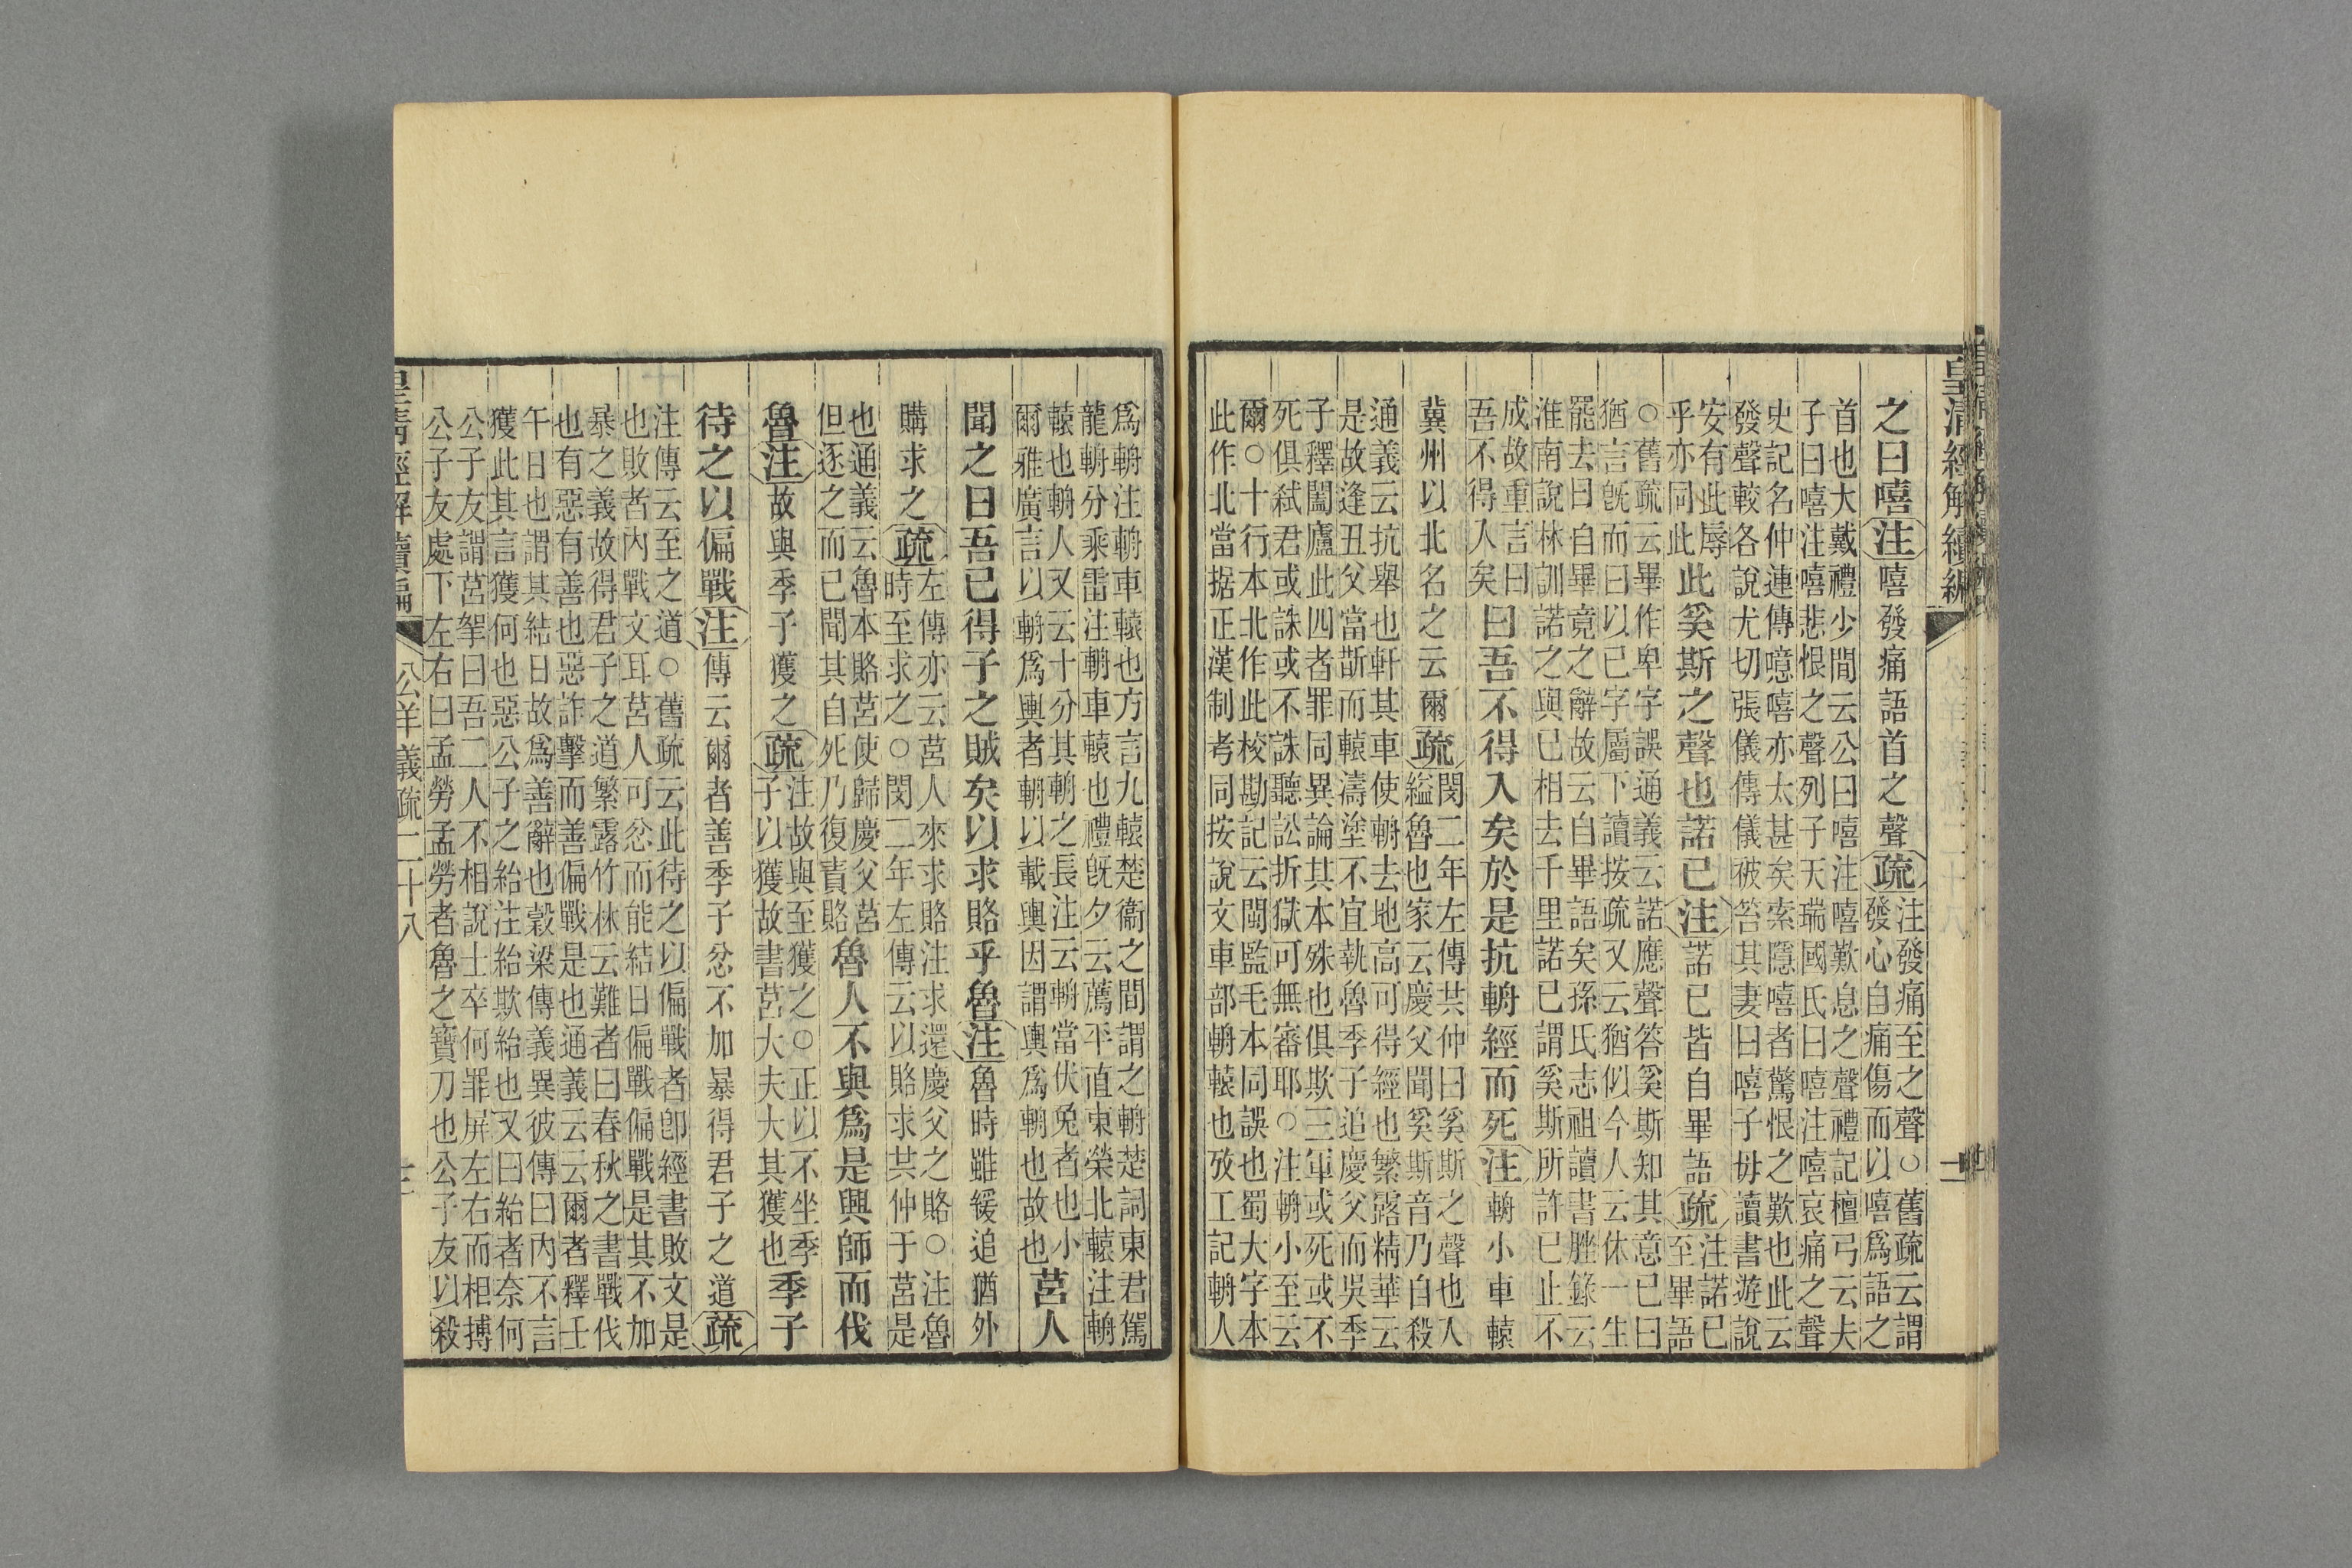 皇清經解續編
二
之曰嘻注嘻發痛語首之聲疏注發痛至之聲○舊疏云謂
發心自痛傷而以嘻爲語之
首也大戴禮少間云公曰嘻注嘻歎息之聲禮記檀弓云夫
子曰嘻注嘻悲恨之聲列子天瑞國氏曰嘻注嘻哀痛之聲
史記名仲連傳噫嘻亦太甚矣索隱嘻者驚恨之歎也此云
發聲較各說尤切張儀傳儀彼笞其妻曰嘻子毋讀書遊說
安有此辱
乎亦同此此奚斯之聲也諾已注諾已皆自畢語疏注諾已
至畢語
○舊疏云畢作卑字誤通義云諾應聲答奚斯知其意已曰
猶言旣而曰以已字屬下讀按疏又云猶似今人云休一生
罷去曰自畢竟之辭故云自畢語矣孫氏志祖讀書脞錄云
淮南說林訓諾之與已相去千里諾已謂奚斯所許已止不
成故重言曰
吾不得人矣曰吾不得入矣於是抗輈經而死注輈小車轅
冀州以北名之云爾疏閔二年左傳共仲曰奚斯之聲也人
縊魯也家云慶父聞奚斯音乃自殺
通義云抗舉也軒其車使輈去地高可得經也繁露精華云
是故逢丑父當斮而轅濤塗不宜執魯季子追慶父而吳季
子釋闔廬此四者罪同異論其本殊也俱欺三軍或死或不
死俱弑君或誅或不誅聽訟折獄可無審耶○注輈小至云
爾○十行本北作此校勘記云閩監毛本同誤也蜀大字本
此作北當据正漢制考同按說文車部輈轅也攷工記輈人
爲輈注輈車轅也方言九轅楚衞之間謂之輈楚詞東君駕
龍輈分乘雷注輈車轅也禮旣夕云薦平直東榮北轅注輈
轅也輈人又云十分其輈之長注云輈當伏兔者也小
爾雅廣言以輈爲輿者輈以載輿因謂輿爲輈也故也莒人
聞之曰吾已得子之賊矣以求賂乎魯注魯時雖緩追猶外
購求之疏左傳亦云莒人來求賂注求還慶父之賂○注魯
時至求之○閔二年左傳云以賂求共仲于莒是
也通義云魯本賂莒使歸慶父莒
但逐之而已聞其自死乃復責賂魯人不與爲是興師而伐
魯注故與季子獲之疏注故與至獲之○正以不坐季
子以獲故書莒大夫大其獲也季子
待之以偏戰注傳云爾者善季子忿不加暴得君子之道疏
注傳云至之道○舊疏云此待之以偏戰者卽經書敗文是
也敗者內戰文耳莒人可忿而能結日偏戰偏戰是其不加
暴之義故得君子之道繁露竹林云難者曰春秋之書戰伐
也有惡有善也惡詐擊而善偏戰是也通義云云爾者釋壬
午日也謂其結日故爲善辭也穀梁傳義異彼傳曰內不言
獲此其言獲何也惡公子之紿注紿欺紿也又曰紿者奈何
公子友謂莒挐曰吾二人不相說士卒何罪屏左右而相搏
公子友處下左右曰孟勞孟勞者魯之寶刀也公子友以殺
皇淸經解續編
公羊義疏二十八